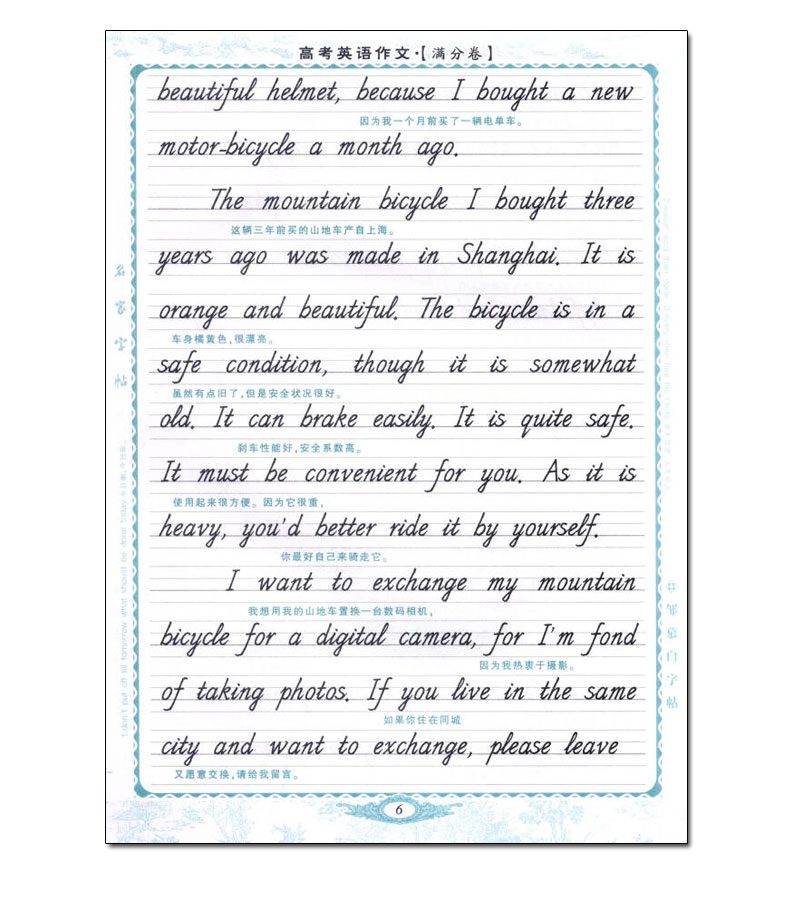 高考英语作文·【满分卷】
beautiful helmet, because I bought a new
因为我一个月前买了一辆电单车。
motor-bicycle a month ago.
The mountain bicycle I bought three
这辆三年前买的山地车产自上海。
years ago was made in Shanghai. It is
orange and beautiful. The bicycle is in a
车身橘黄色,很漂亮。
safe condition, though it is somewhat
虽然有点旧了,但是安全状况很好。
old. It can brake easily. It is quite safe.
刹车性能好,安全系数高。
It must be convenient for you. As it is
使用起来很方便。因为它很重,
heavy, you'd better ride it by yourself.
你最好自己来骑走它。
I want to exchange my mountain
我想用我的山地车置换一台数码相机,
bicycle for a digital camera, for I'm fond
因为我热衷于摄影。
of taking photos. If you live in the same
如果你住在同城
city and want to exchange, please leave
又愿意交换,请给我留言。
名家字帖
6